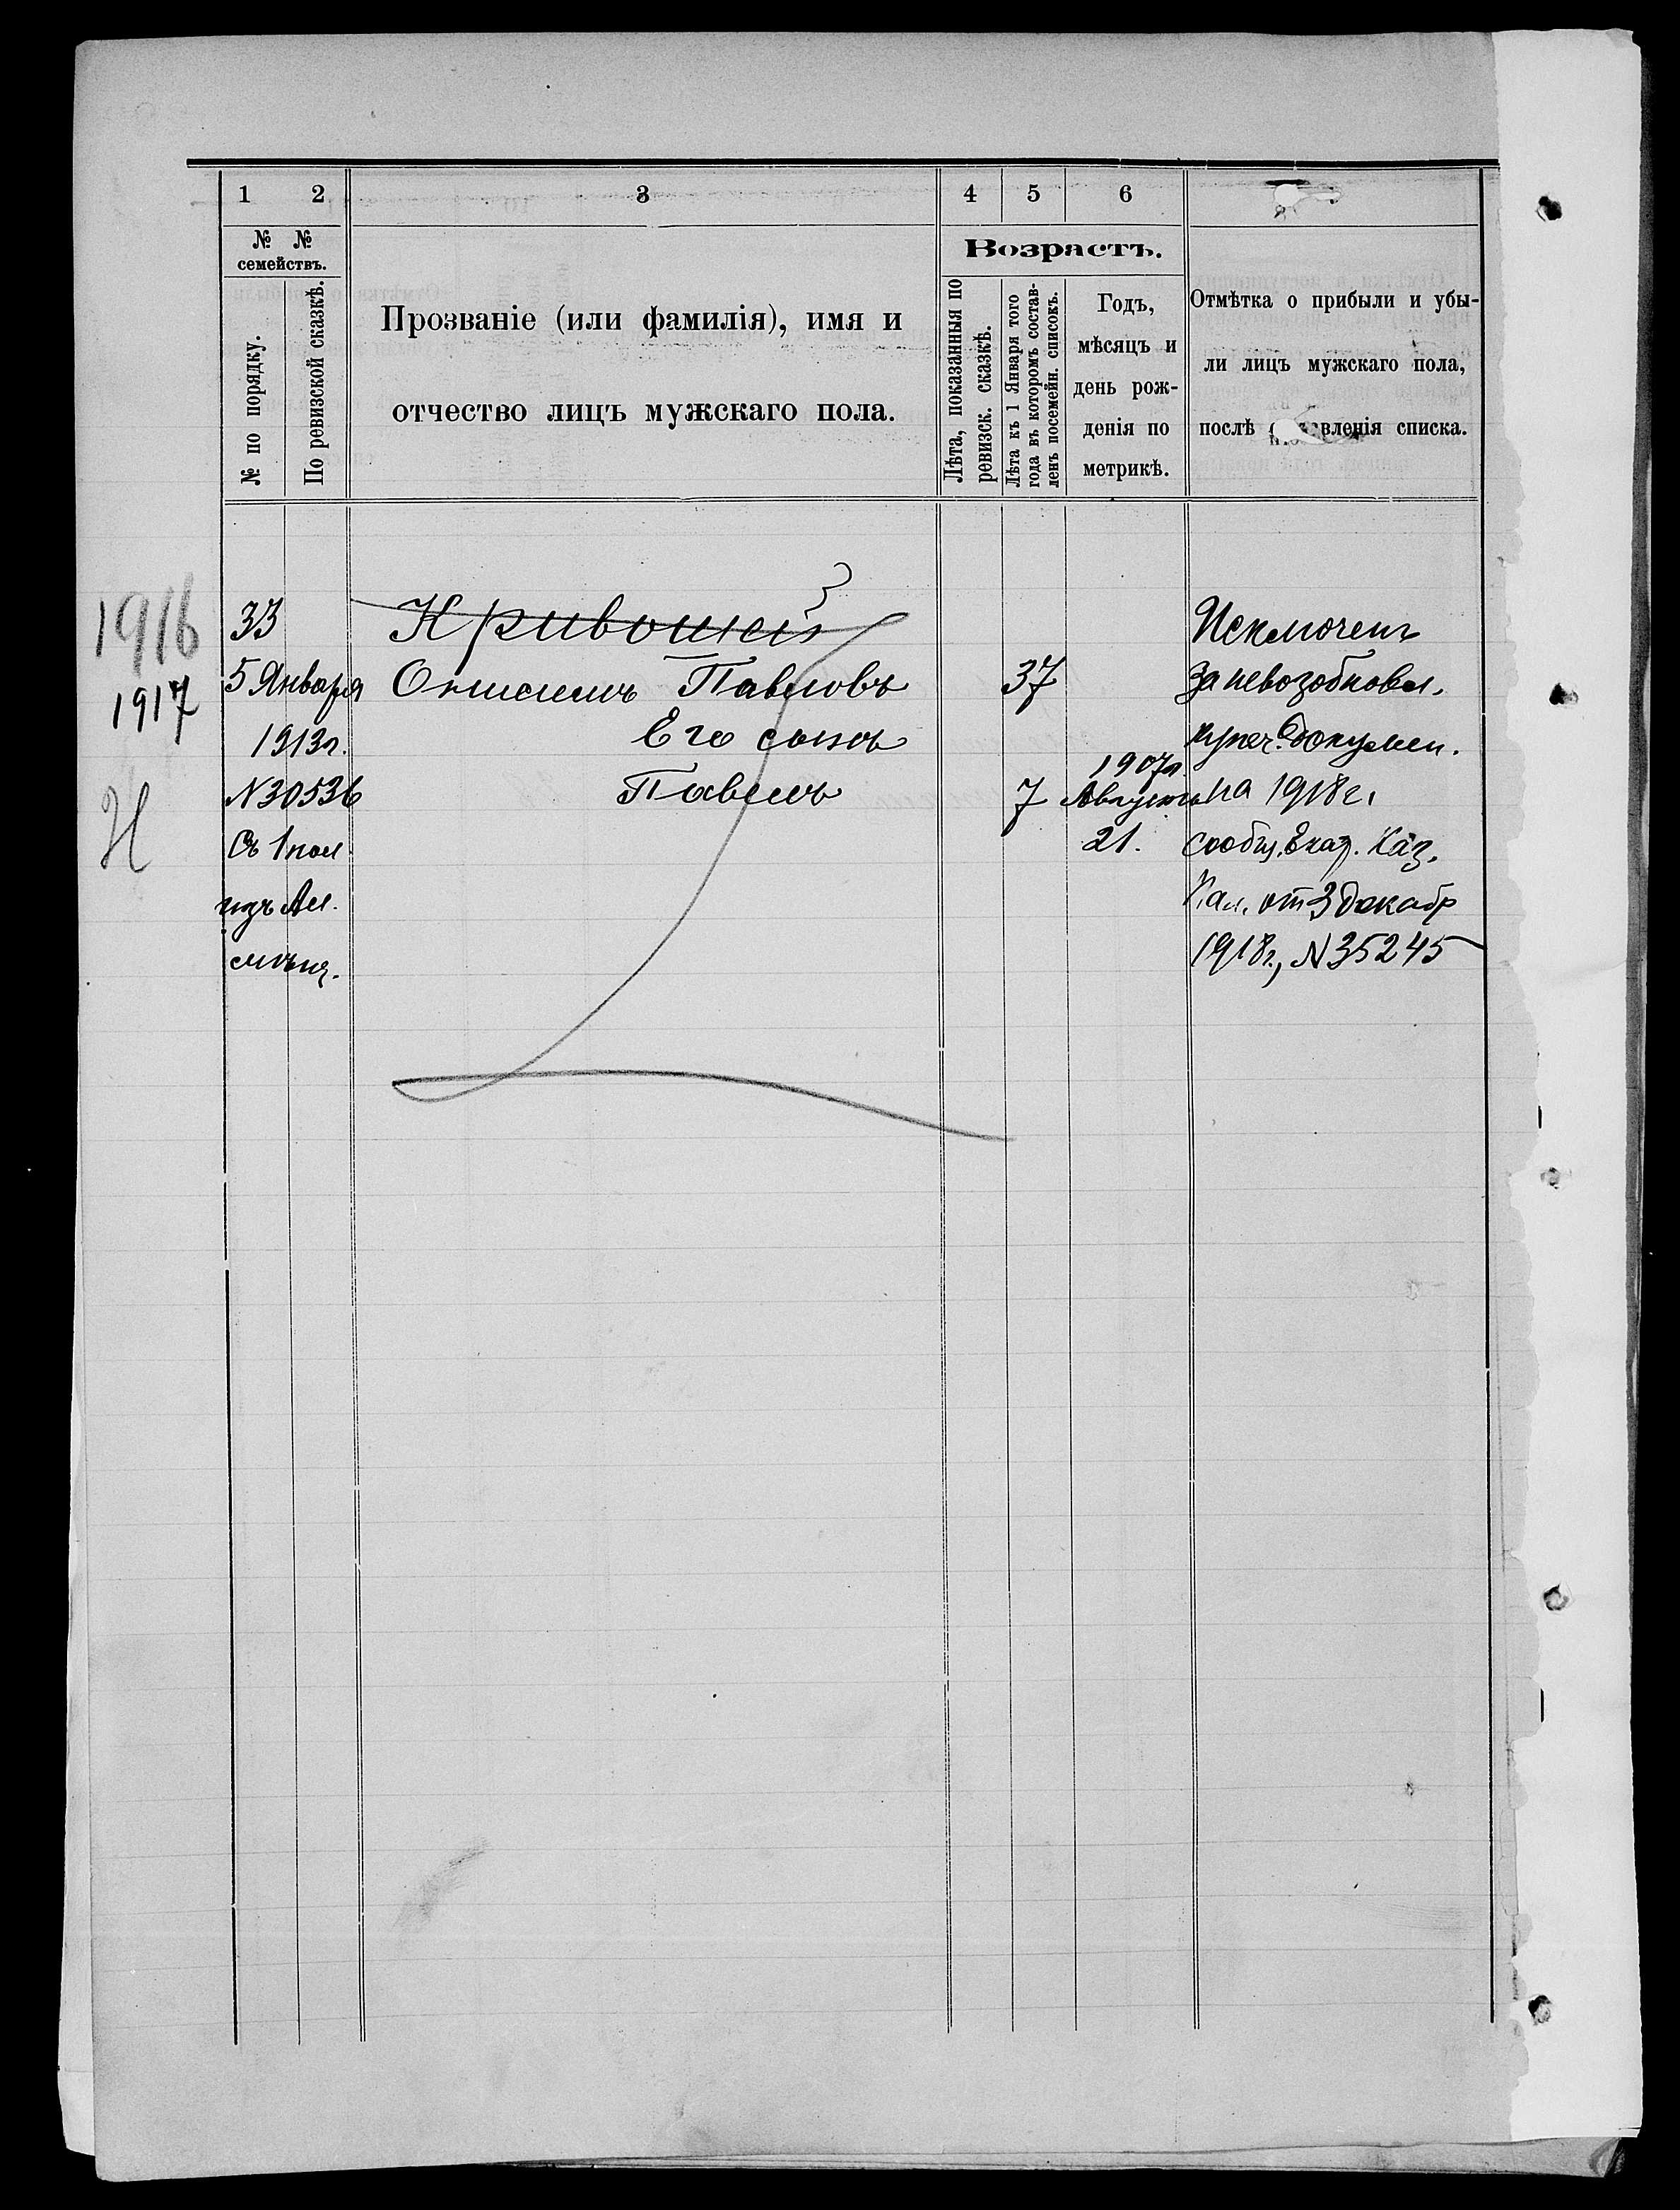 1 2 3 4 5 6
№ № семействъ.
№ по порядку.
По ревизской сказкѣ.
Прозваніе (или фамилія), имя и
отчество лицъ мужскаго пола.
Возрастъ.
Лѣта, показанныя по
ревизск. сказкѣ.
Лѣта къ 1 Января того
года въ которомъ состав-
ленъ посемейн. списокъ.
Годъ,
мѣсяцъ и
день рож-
денія по
метрикѣ.
Отмѣтка о прибыли и убы-
ли лицъ мужскаго пола,
послѣ списка.
1916
1917
Н
33
5 Января
1913г.
N30536
Съ 1 пол
изъ Ал.
мѣщ.
Кривошей
Онисимъ Павловъ
Его сынъ
Павелъ
37
7
1907г.
Августа
21.
Исключенъ
за невозобновл.
купеч. докумен.
на 1918г.
сообщ. Екат. Каз.
Пал. от 3 декабр
1918г., N35245